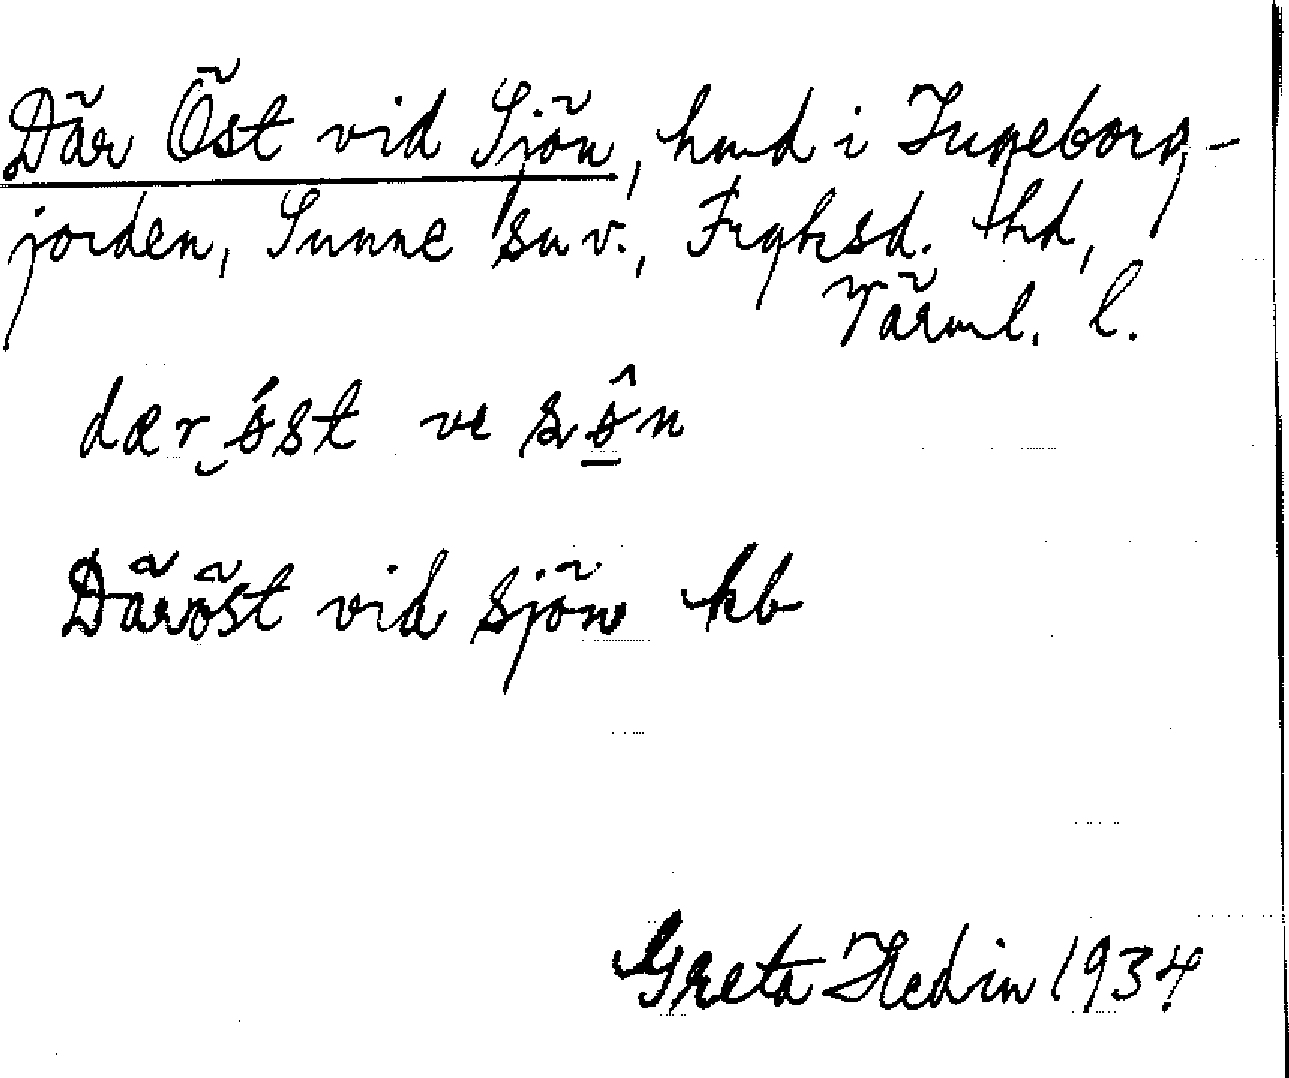 Där Öst vid Sjön, hmd i Ingeborg-
jorden, Sunne snv., Fryksd. hd,
Värml. l.
dær öst ve sön
Däröst vid sjön kb
Greta Hedin 1934